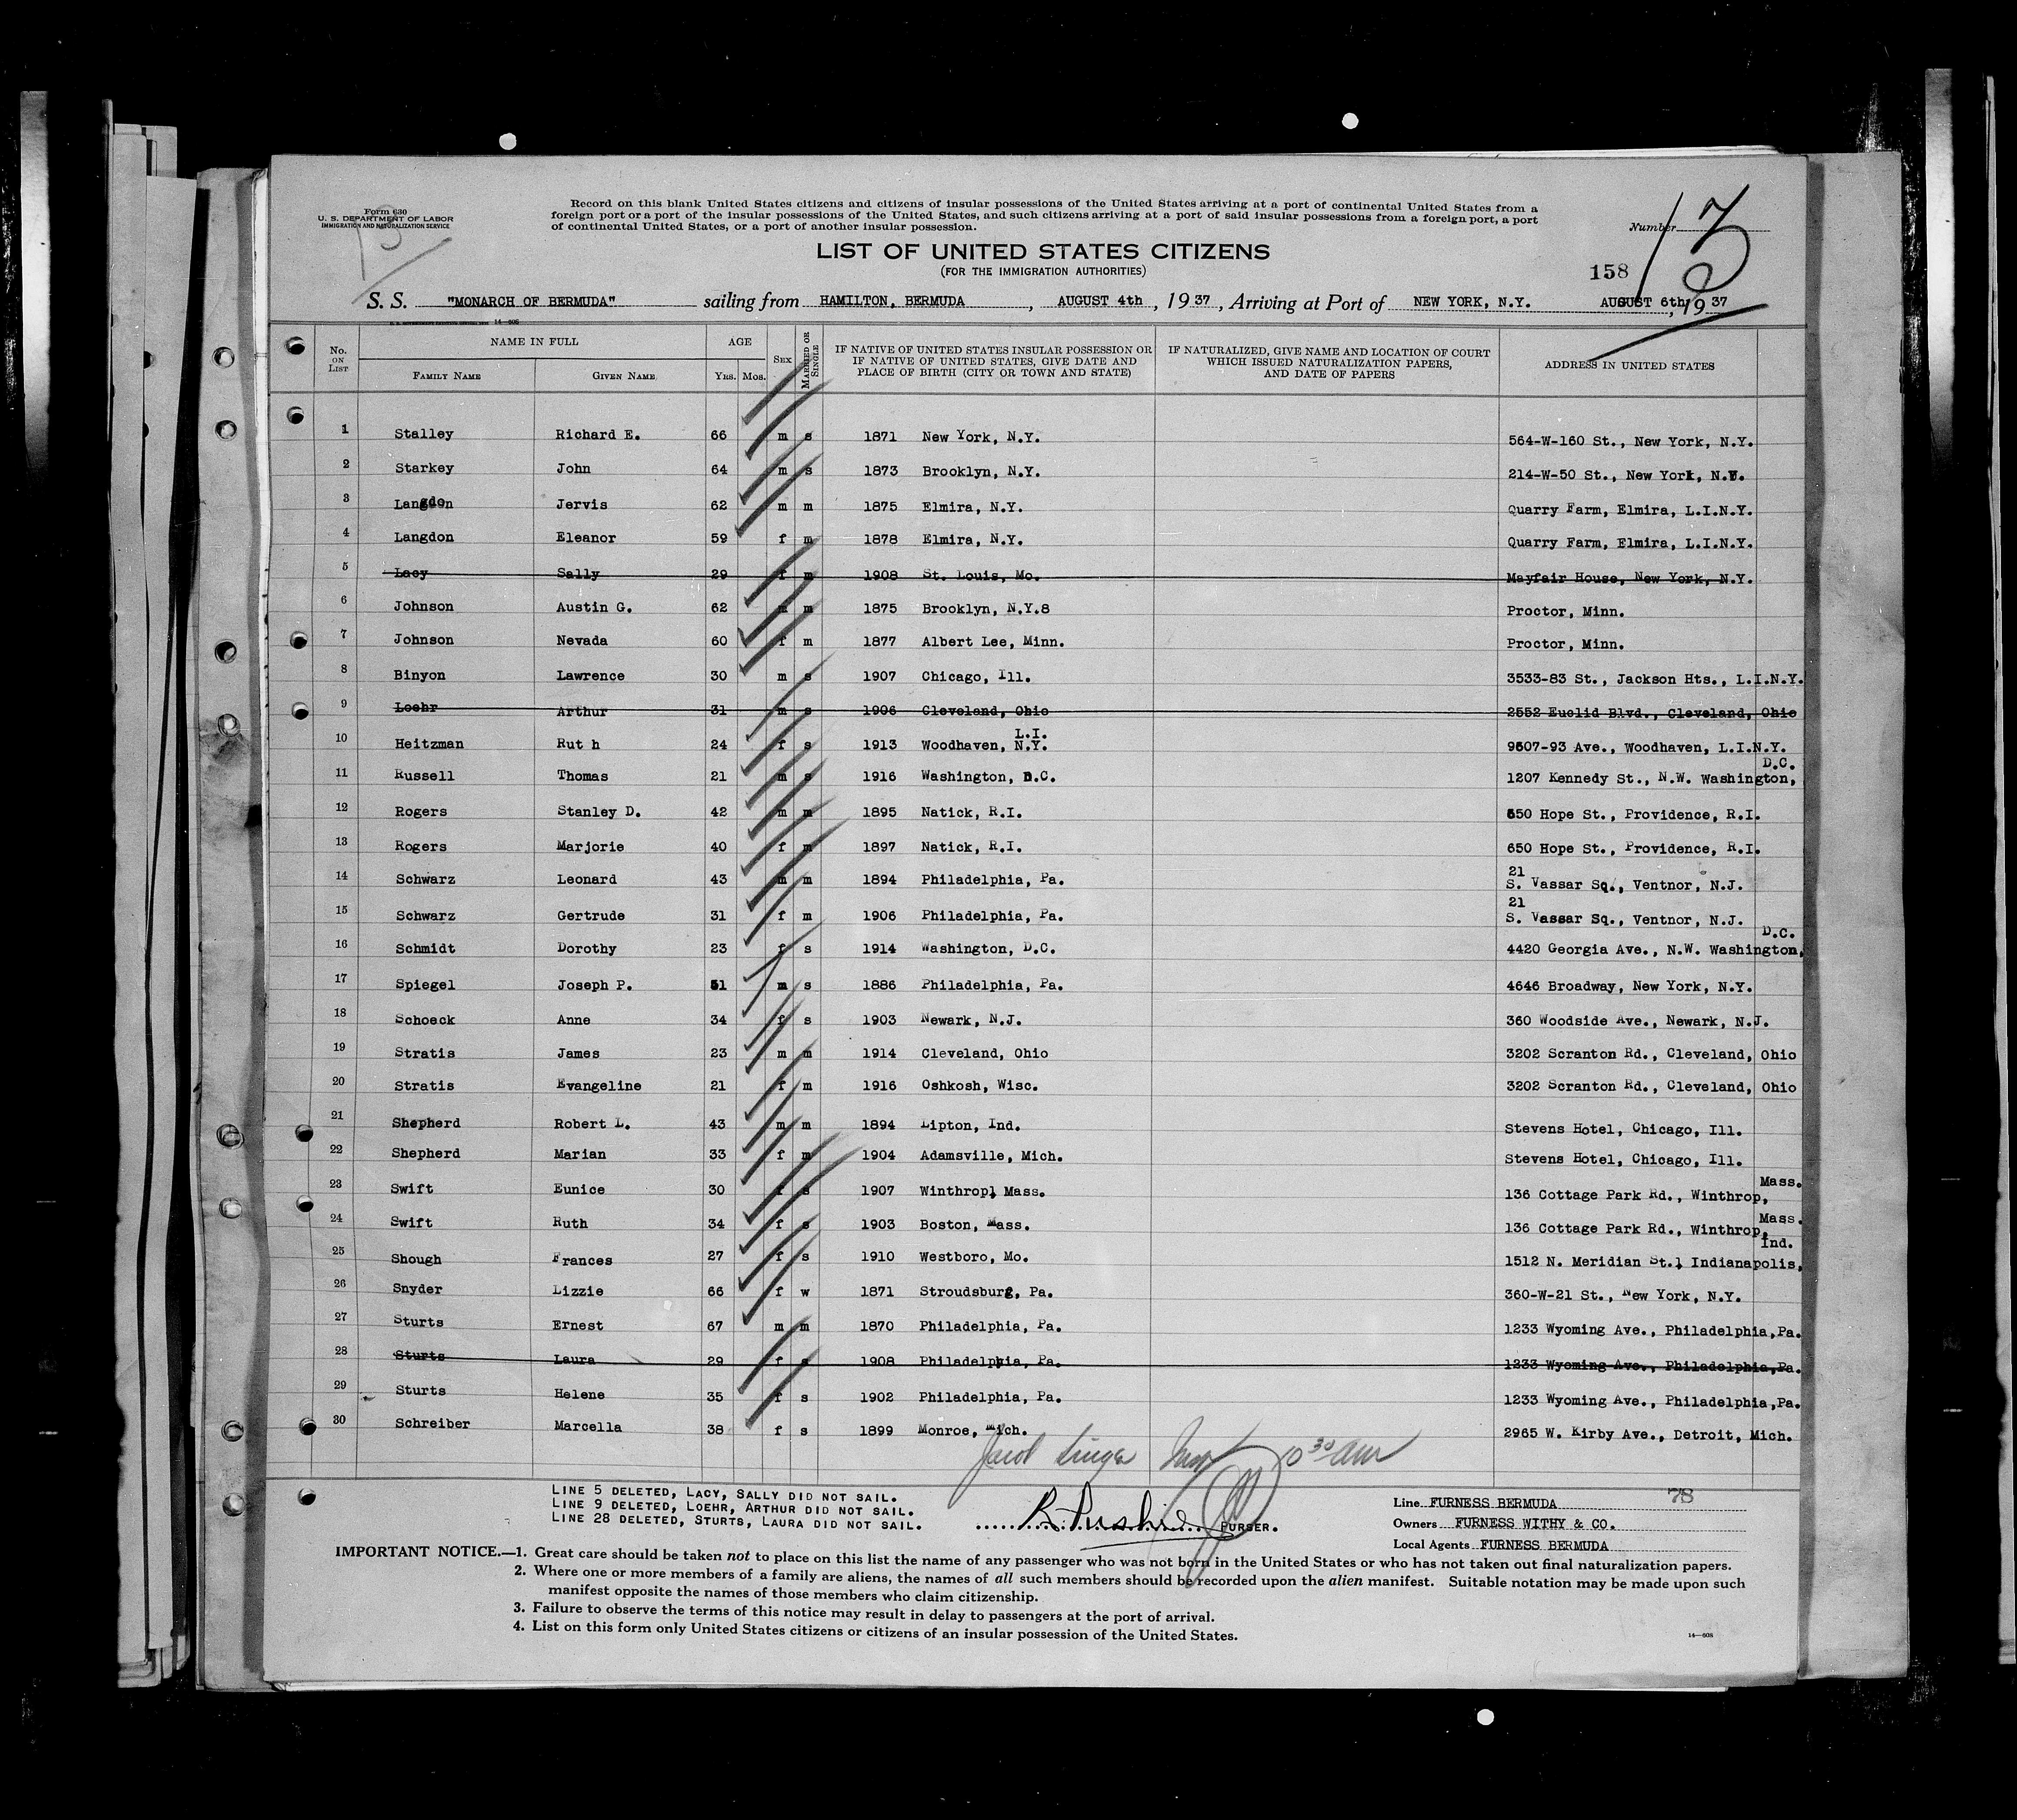 Form 630
U. S. DEPARTMENT OF LABOR
IMMIGRATION AND NATURALIZATION SERVICE
Record on this blank United States citizens and citizens of insular possessions of the United States arriving at a port of continental United States from a
foreign port or a port of the insular possessions of the United States, and such citizens arriving at a port of said insular possessions from a foreign port, a port
of continental United States, or a port of another insular possession.
Number 13
LIST OF UNITED STATES CITIZENS
(FOR THE IMMIGRATION AUTHORITIES)
158
S. S. "MONARCH OF BERMUDA" sailing from HAMILTON, BERMUDA, AUGUST 4th, 1937, Arriving at Port of NEW YORK, N.Y. AUGUST 6th, 1937
No. ON LIST NAME IN FULL FAMILY NAME GIVEN NAME AGE YRS. MOS. SEX MARRIED OR SINGLE IF NATIVE OF UNITED STATES INSULAR POSSESSION OR IF NATIVE OF UNITED STATES, GIVE DATE AND PLACE OF BIRTH (CITY OR TOWN AND STATE) IF NATURALIZED, GIVE NAME AND LOCATION OF COURT WHICH ISSUED NATURALIZATION PAPERS, AND DATE OF PAPERS ADDRESS IN UNITED STATES
1 Stalley Richard E. 66 m s 1871 New York, N.Y. 564-W-160 St., New York, N.Y.
2 Starkey John 64 m s 1873 Brooklyn, N.Y. 214-W-50 St., New York, N.Y.
3 Langdon Jervis 62 m m 1875 Elmira, N.Y. Quarry Farm, Elmira, L.I.N.Y.
4 Langdon Eleanor 59 f m 1878 Elmira, N.Y. Quarry Farm, Elmira, L.I.N.Y.
5 Lacy Sally 29 f m 1908 St. Louis, Mo. Mayfair House, New York, N.Y.
6 Johnson Austin G. 62 m m 1875 Brooklyn, N.Y.8 Proctor, Minn.
7 Johnson Nevada 60 f m 1877 Albert Lee, Minn. Proctor, Minn.
8 Binyon Lawrence 30 m s 1907 Chicago, Ill. 3533-83 St., Jackson Hts., L.I.N.Y.
9 Loehr Arthur 31 m s 1906 Cleveland, Ohio 2552 Euclid Blvd., Cleveland, Ohio
10 Heitzman Rut h 24 f s 1913 Woodhaven, L.I. N.Y. 9607-93 Ave., Woodhaven, L.I.N.Y.
11 Russell Thomas 21 m s 1916 Washington, D.C. 1207 Kennedy St., N.W. Washington, D.C.
12 Rogers Stanley D. 42 m m 1895 Natick, R.I. 650 Hope St., Providence, R.I.
13 Rogers Marjorie 40 f m 1897 Natick, R.I. 650 Hope St., Providence, R.I.
14 Schwarz Leonard 43 m m 1894 Philadelphia, Pa. 21 S. Vassar Sq., Ventnor, N.J.
15 Schwarz Gertrude 31 f m 1906 Philadelphia, Pa. 21 S. Vassar Sq., Ventnor, N.J.
16 Schmidt Dorothy 23 f s 1914 Washington, D.C. 4420 Georgia Ave., N.W. Washington, D.C.
17 Spiegel Joseph P. 51 m s 1886 Philadelphia, Pa. 4646 Broadway, New York, N.Y.
18 Schoeck Anne 34 f s 1903 Newark, N.J. 360 Woodside Ave., Newark, N.J.
19 Stratis James 23 m m 1914 Cleveland, Ohio 3202 Scranton Rd., Cleveland, Ohio
20 Stratis Evangeline 21 f m 1916 Oshkosh, Wisc. 3202 Scranton Rd., Cleveland, Ohio
21 Shepherd Robert L. 43 m m 1894 Lipton, Ind. Stevens Hotel, Chicago, Ill.
22 Shepherd Marian 33 f m 1904 Adamsville, Mich. Stevens Hotel, Chicago, Ill.
23 Swift Eunice 30 f s 1907 Winthrop, Mass. 136 Cottage Park Rd., Winthrop, Mass.
24 Swift Ruth 34 f s 1903 Boston, Mass. 136 Cottage Park Rd., Winthrop, Mass.
25 Shough Frances 27 f s 1910 Westboro, Mo. 1512 N. Meridian St., Indianapolis, Ind.
26 Snyder Lizzie 66 f w 1871 Stroudsburg, Pa. 360-W-21 St., New York, N.Y.
27 Sturts Ernest 67 m m 1870 Philadelphia, Pa. 1233 Wyoming Ave., Philadelphia, Pa.
28 Sturts Laura 29 f s 1908 Philadelphia, Pa. 1233 Wyoming Ave., Philadelphia, Pa.
29 Sturts Helene 35 f s 1902 Philadelphia, Pa. 1233 Wyoming Ave., Philadelphia, Pa.
30 Schreiber Marcella 38 f s 1899 Monroe, Mich. 2965 W. Kirby Ave., Detroit, Mich.
Jacob Singer 10 30 am
LINE 5 DELETED, LACY, SALLY DID NOT SAIL.
LINE 9 DELETED, LOEHR, ARTHUR DID NOT SAIL.
LINE 28 DELETED, STURTS, LAURA DID NOT SAIL.
PURSER.
78
Line FURNESS BERMUDA
Owners FURNESS WITHY & CO.
Local Agents FURNESS BERMUDA
IMPORTANT NOTICE.—1. Great care should be taken not to place on this list the name of any passenger who was not born in the United States or who has not taken out final naturalization papers.
2. Where one or more members of a family are aliens, the names of all such members should be recorded upon the alien manifest. Suitable notation may be made upon such
manifest opposite the names of those members who claim citizenship.
3. Failure to observe the terms of this notice may result in delay to passengers at the port of arrival.
4. List on this form only United States citizens or citizens of an insular possession of the United States.
14—608